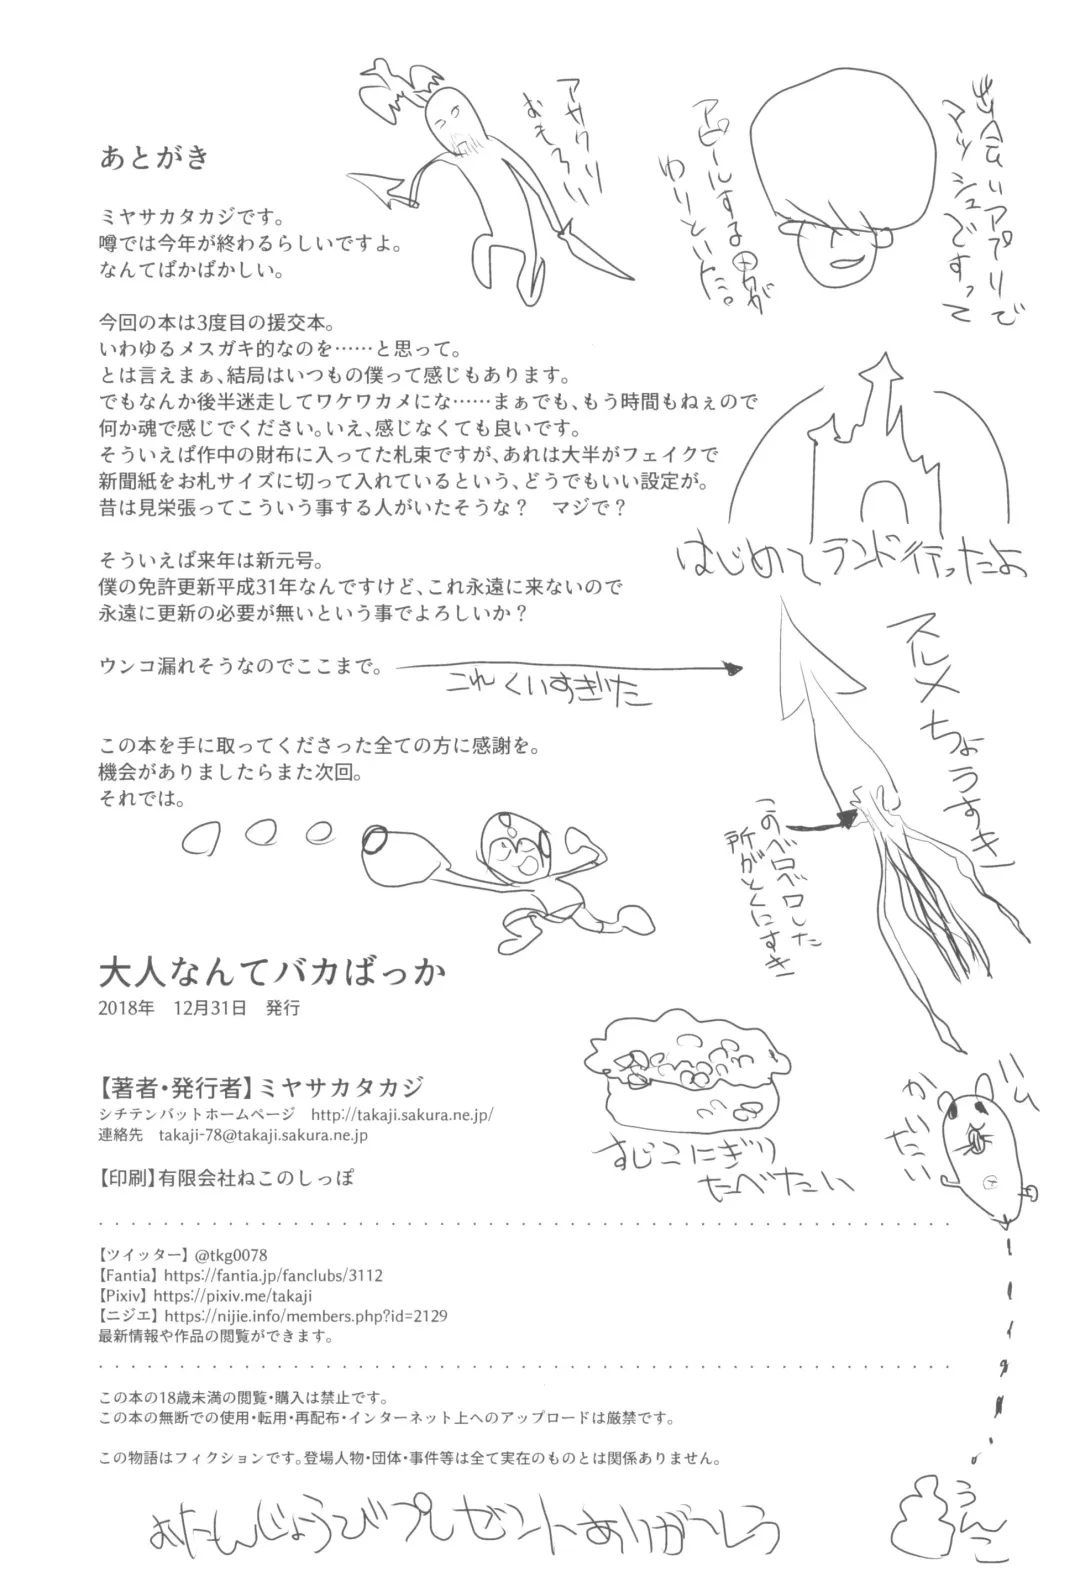 あとがき
ミヤサカタカジです。
噂では今年が終わるらしいですよ。
なんてばかばかしい。
今回の本は3度目の援交本。
いわゆるメスガキ的なのを……と思って。
とは言えまぁ、結局はいつもの僕って感じもあります。
でもなんか後半迷走してワケワカメにな……まぁでも、もう時間もねぇので
何か魂で感じでください。いえ、感じなくても良いです。
そういえば作中の財布に入ってた札束ですが、あれは大半がフェイクで
新聞紙をお札サイズに切って入れているという、どうでもいい設定が。
昔は見栄張ってこういう事する人がいたそうな？　マジで？
そういえば来年は新元号。
僕の免許更新平成31年なんですけど、これ永遠に来ないので
永遠に更新の必要が無いという事でよろしいか？
ウンコ漏れそうなのでここまで。
これ くいすぎいた
この本を手に取ってくださった全ての方に感謝を。
機会がありましたらまた次回。
それでは。
アサクリ
おもろい
出会いアプリで
マッシュですって
アピールする男が
わりといた。
はじめてランド行ったよ
スルメちょうすき
このベロベロした
所がとくにすき
すじこにぎり
たべたい
ハム
かいたい
うんこ
大人なんてバカばっか
2018年　12月31日　発行
【著者・発行者】ミヤサカタカジ
シチテンバットホームページ　http://takaji.sakura.ne.jp/
連絡先　takaji-78@takaji.sakura.ne.jp
【印刷】有限会社ねこのしっぽ
【ツイッター】@tkg0078
【Fantia】https://fantia.jp/fanclubs/3112
【Pixiv】https://pixiv.me/takaji
【ニジエ】https://nijie.info/members.php?id=2129
最新情報や作品の閲覧ができます。
この本の18歳未満の閲覧・購入は禁止です。
この本の無断での使用・転用・再配布・インターネット上へのアップロードは厳禁です。
この物語はフィクションです。登場人物・団体・事件等は全て実在のものとは関係ありません。
おたんじょうびプレゼントありがーしう